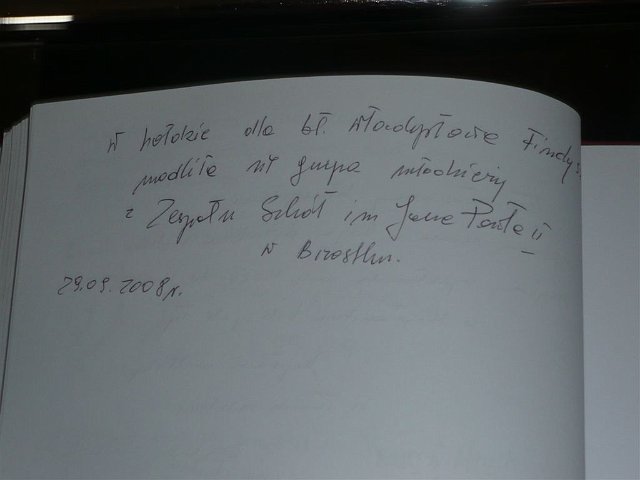 W hołdzie dla bł. Władysława Findysza
modliła się grupa młodzieży
z Zespołu Szkół im Jana Pawła II
w Brzostku.
29.09.2008r.